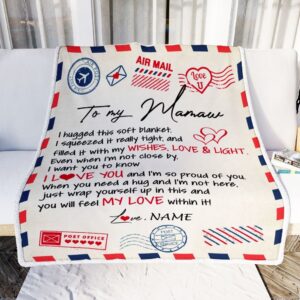 AIR MAIL
Love U
To my Mamaw
I hugged this soft blanket.
I squeezed it really tight, and
filled it with my WISHES, LOVE & LIGHT.
Even when i'm not close by,
I want you to know
I LOVE YOU and I'm so proud of you.
When you need a hug and I'm not here,
just wrap yourself up in this and
you will feel MY LOVE within it!
Love, NAME
POST OFFICE